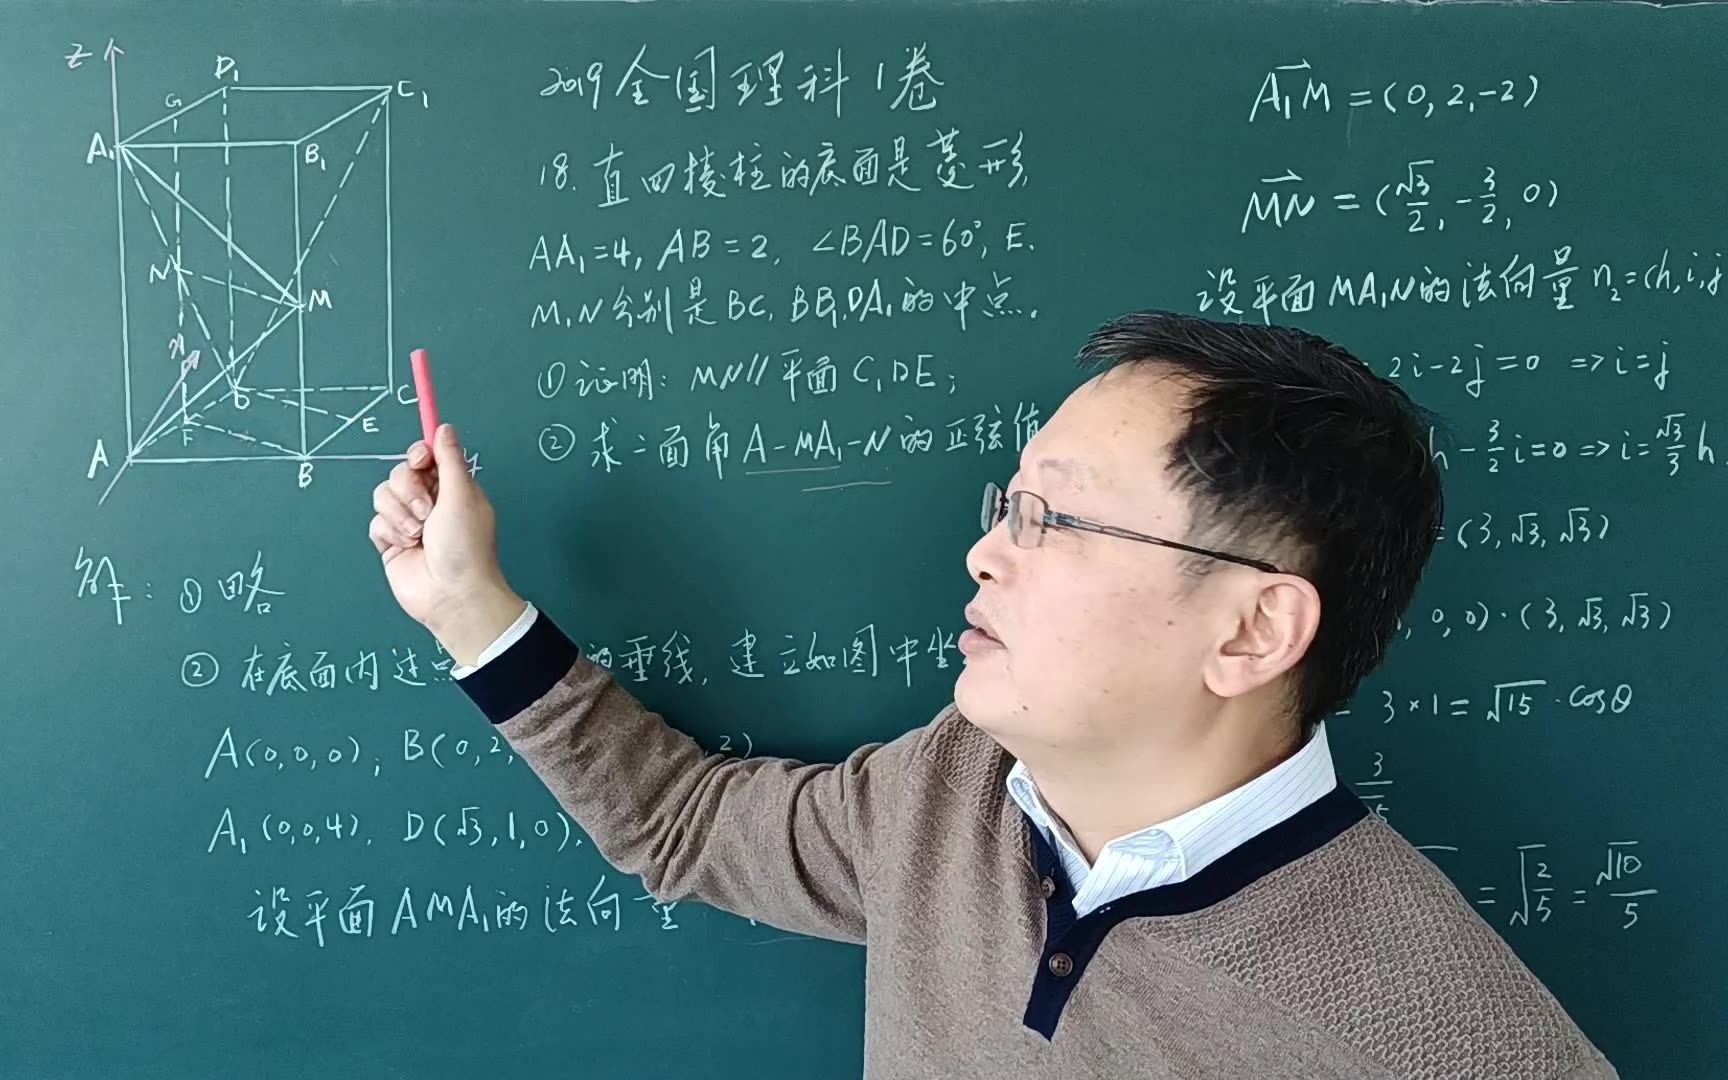 2019全国理科1卷
18.直四棱柱的底面是菱形,
AA₁=4, AB=2, ∠BAD=60°, E.
M,N分别是BC, BB₁,DA₁的中点.
①证明: MN∥平面C₁DE;
②求二面角A-MA₁-N的正弦值
z
D₁
C₁
G
A₁
B₁
N
M
x
D
C
E
F
A
B
y
解: ①略
②在底面内过 的垂线, 建立如图中
A(0,0,0); B(0,2, ,2)
A₁(0,0,4), D(√3,1,0),
设平面AMA₁的法向量
A₁M=(0,2,-2)
MN=(√3/2,-3/2,0)
设平面MA₁N的法向量n₂=(h,i,j
2i-2j=0 ⇒i=j
h-3/2i=0⇒i=√3/3h
=(3,√3,√3)
,0,0)·(3,√3,√3)
3×1=√15·cosθ
3
=√2/5=√10/5